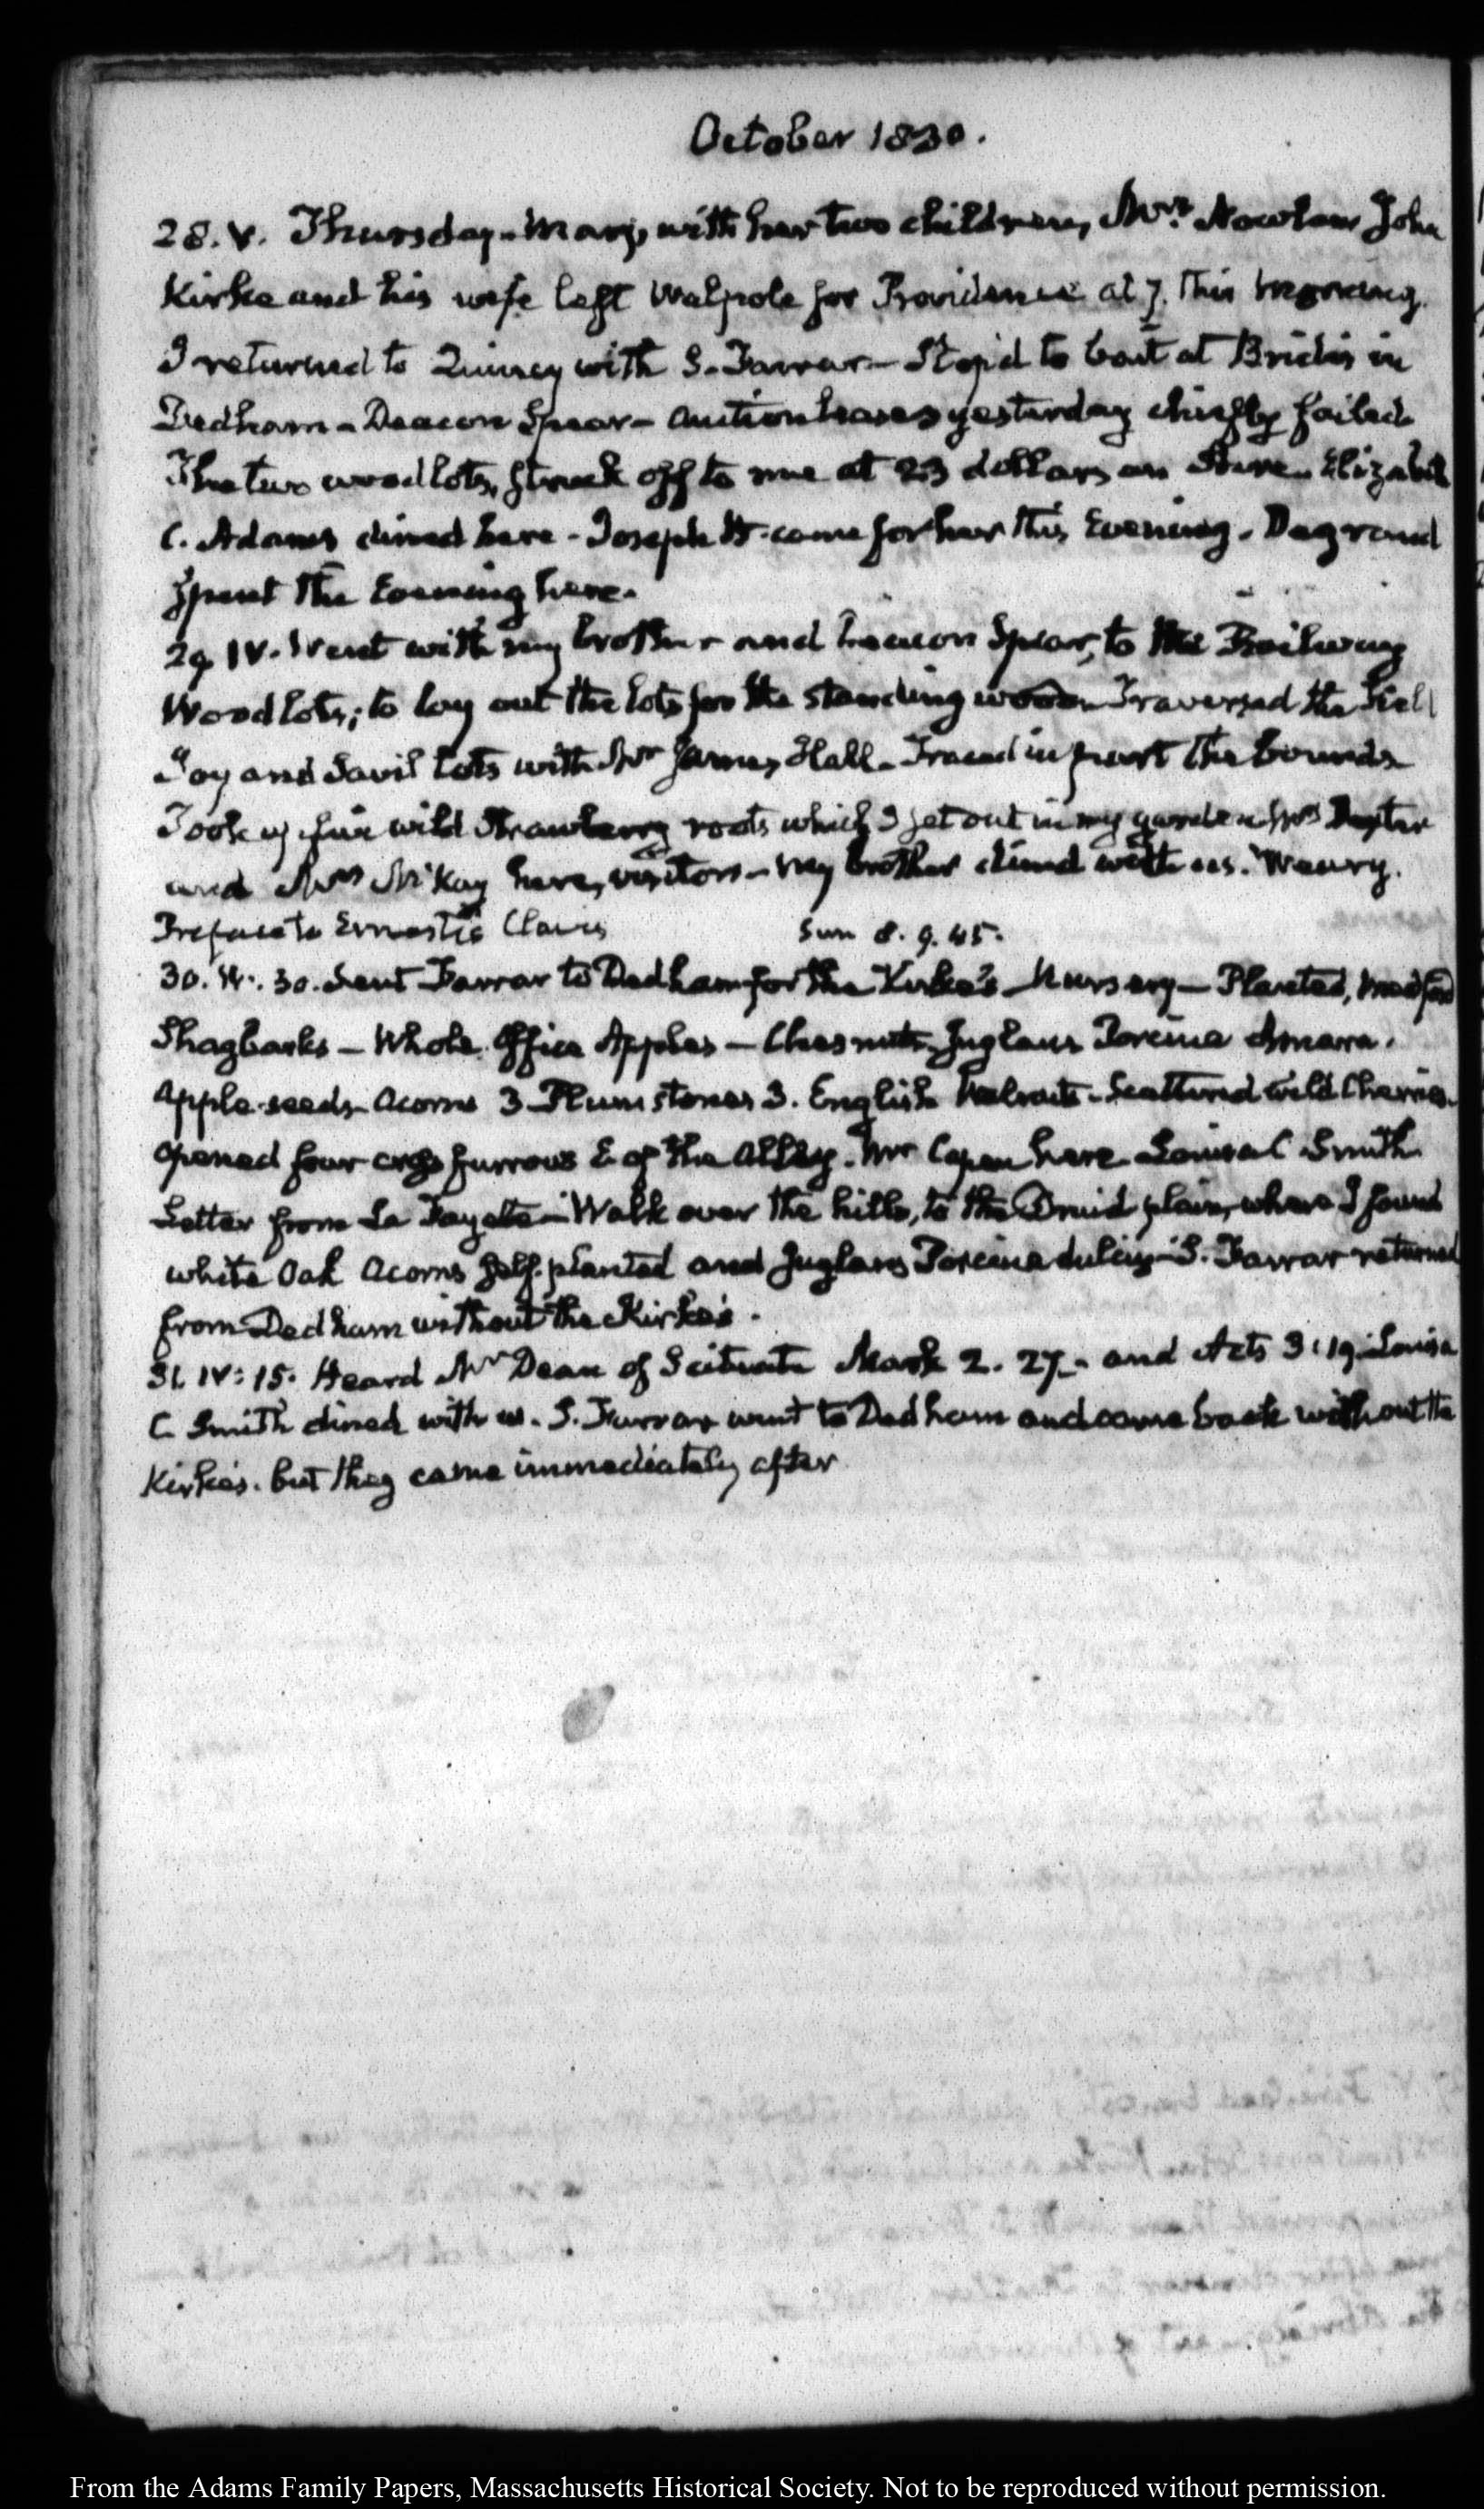 October 1830.
28. V. Thursday. Mary, with her two children, Mrs. Nowlan John
Kirke and his wife left Walpole for Providence at 7. this morning.
I returned to Quincy with S. Farrar — Stop'd to bait at Brides in
Dedham — Deacon Spear — Auction leases yesterday chiefly failed
The two wood lots, struck off to me at 23 dollars an Acre. Elizabeth
C. Adams dined here - Joseph H. came for her this Evening. Degrand
spent the Evening here.
29. IV. Went with my brother and Deacon Spear, to the Railway
Wood lots; to lay out the lots for the standing wood. Traversed the
Joy and Savil lots with Mr James Hall — Traced in part the bounds
Took up wild Strawberry roots which I set out in my garden Mrs
and Mrs McKay here, visitors — My brother dined with us. Weary.
Preface to Ernesti's Clavis
Sun 8. 9. 45.
30. IV. 30. Sent Farrar to Dedham for the Kirke's — Nursery — Planted, Medford
Shagbarks — Whole Office Apples — Chesnuts Juglans Porcina Amara.
Apple-seeds Acorns 3 Plum stones 3. English Walnuts — Scattered wild Cherries.
Opened four cross furrows E of the Alley. Mr Capen here Louisa C Smith
Letter from La Fayette — Walk over the hills, to the Druid plain, where I found
white Oak Acorns self-planted and Juglans Porcina dulcis — S. Farrar returned
from Dedham without the Kirke's.
31. IV: 15. Heard Mr Dean of Scituate Mark 2. 27. and Acts 3:19. Louisa
C Smith dined with us. S. Farrar went to Dedham and came back without the
Kirke's. but they came immediately after
From the Adams Family Papers, Massachusetts Historical Society. Not to be reproduced without permission.